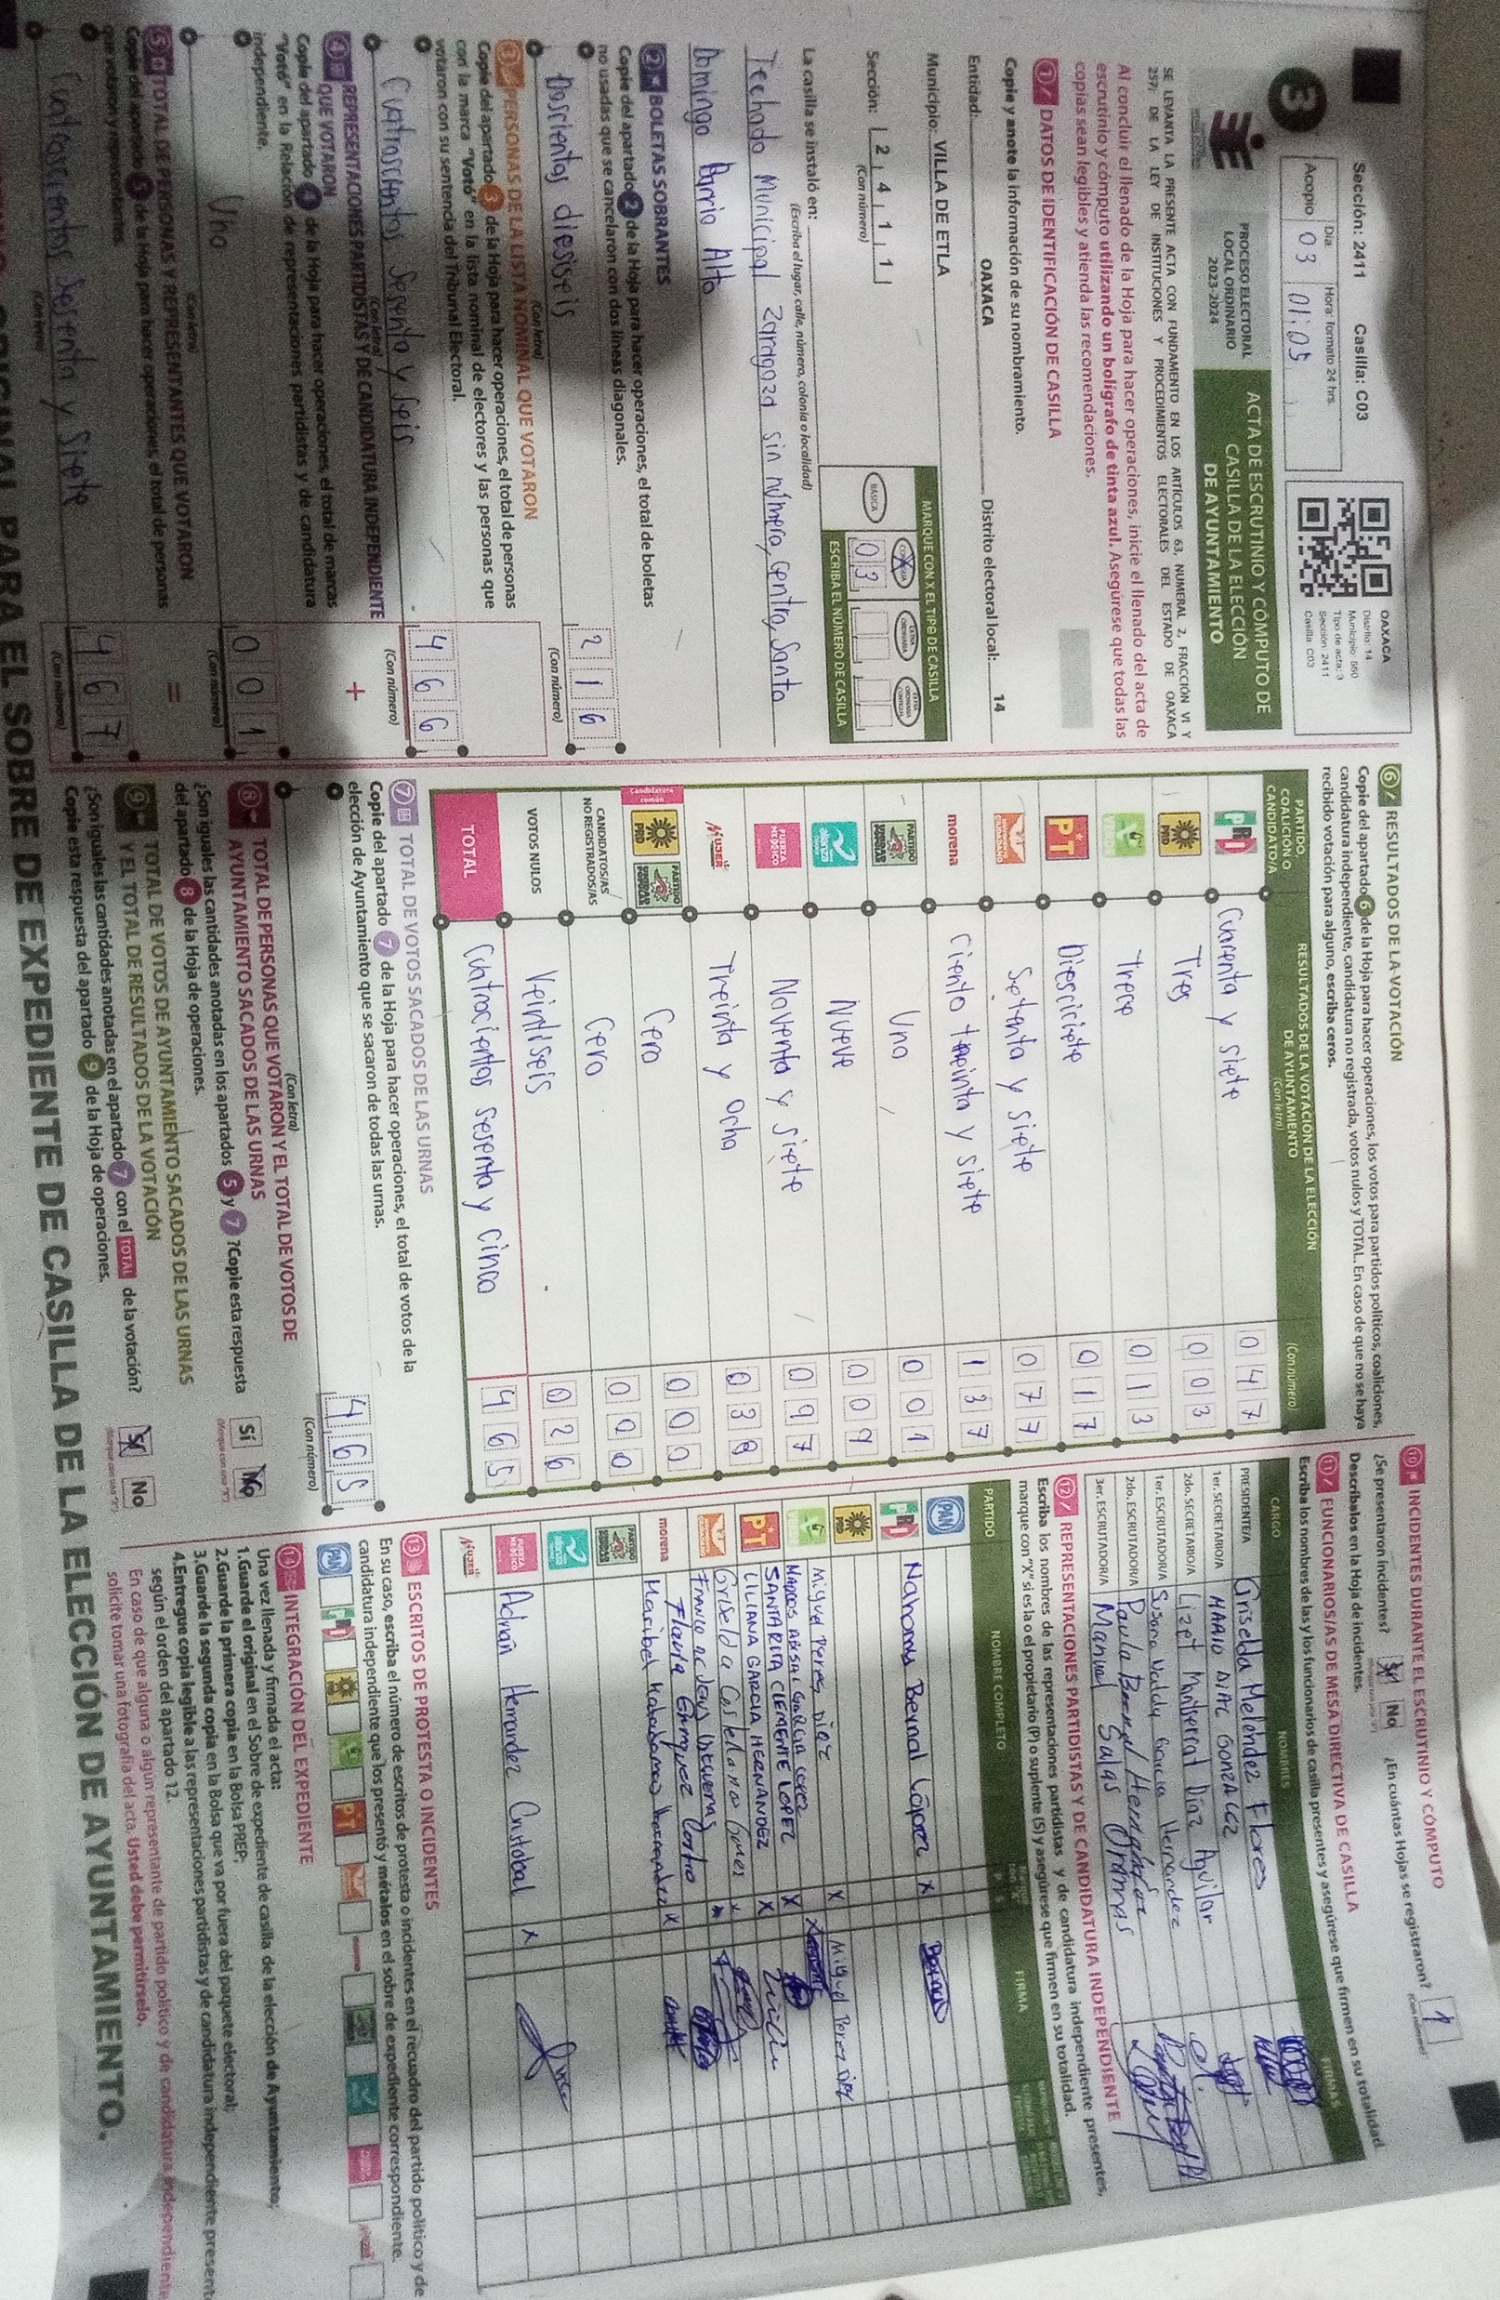 Sección: 2411 Casilla: C03
Acopio Día: Hora: formato 24 hrs.
03 01:05
OAXACA
Distrito: 14
Municipio: 550
Tipo de acta: 3
Sección: 2411
Casilla: C03
3
PROCESO ELECTORAL
LOCAL ORDINARIO
2023-2024
ACTA DE ESCRUTINIO Y CÓMPUTO DE
CASILLA DE LA ELECCIÓN
DE AYUNTAMIENTO
SE LEVANTA LA PRESENTE ACTA CON FUNDAMENTO EN LOS ARTÍCULOS 63, NUMERAL 2, FRACCIÓN VI Y
257; DE LA LEY DE INSTITUCIONES Y PROCEDIMIENTOS ELECTORALES DEL ESTADO DE OAXACA
Al concluir el llenado de la Hoja para hacer operaciones, inicie el llenado del acta de
escrutinio y cómputo utilizando un bolígrafo de tinta azul. Asegúrese que todas las
copias sean legibles y atienda las recomendaciones.
1 DATOS DE IDENTIFICACIÓN DE CASILLA
Copie y anote la información de su nombramiento.
Entidad: OAXACA Distrito electoral local: 14
Municipio: VILLA DE ETLA
Sección: 2 4 1 1
(Con número)
MARQUE CON X EL TIPO DE CASILLA
BÁSICA
ESCRIBA EL NÚMERO DE CASILLA
03
La casilla se instaló en:
(Escriba el lugar, calle, número, colonia o localidad)
Techado Municipal Zaragoza sin número, centro, Santo
Domingo Barrio Alto
2 BOLETAS SOBRANTES
Copie del apartado 2 de la Hoja para hacer operaciones, el total de boletas
no usadas que se cancelaron con dos líneas diagonales.
Doscientos diesiseis 2 1 6
(Con letra) (Con número)
3 PERSONAS DE LA LISTA NOMINAL QUE VOTARON
Copie del apartado 3 de la Hoja para hacer operaciones, el total de personas
con la marca "Votó" en la lista nominal de electores y las personas que
votaron con su sentencia del Tribunal Electoral.
Cuatroscientos sesenta y seis 4 6 6
(Con letra) (Con número)
4 REPRESENTACIONES PARTIDISTAS Y DE CANDIDATURA INDEPENDIENTE
QUE VOTARON
+
Copie del apartado 4 de la Hoja para hacer operaciones, el total de marcas
"Votó" en la Relación de representaciones partidistas y de candidatura
independiente.
Uno 0 0 1
(Con letra) (Con número)
5 TOTAL DE PERSONAS Y REPRESENTANTES QUE VOTARON
=
Copie del apartado 5 de la Hoja para hacer operaciones, el total de personas
que votaron y representantes.
Cuatroscientos sesenta y siete 4 6 7
(Con letra) (Con número)
6 RESULTADOS DE LA VOTACIÓN
Copie del apartado 6 de la Hoja para hacer operaciones, los votos para partidos políticos, coaliciones,
candidatura independiente, candidatura no registrada, votos nulos y TOTAL. En caso de que no se haya
recibido votación para alguno, escriba ceros.
PARTIDO,
COALICIÓN O
CANDIDATO/A
RESULTADOS DE LA VOTACIÓN DE LA ELECCIÓN
DE AYUNTAMIENTO
(Con letra) (Con número)
PRI Cuarenta y siete 0 4 7
PRD Tres 0 0 3
Trece 0 1 3
PT Diesciciete 0 1 7
MOVIMIENTO CIUDADANO Setenta y siete 0 7 7
morena Ciento treinta y siete 1 3 7
PARTIDO Uno 0 0 1
alianza Nueve 0 0 9
FUERZA MÉXICO Noventa y siete 0 9 7
MUJER Treinta y ocho 0 3 8
Candidatura común PRD PARTIDO Cero 0 0 0
CANDIDATOS/AS
NO REGISTRADOS/AS Cero 0 0 0
VOTOS NULOS Veintiseis 0 2 6
TOTAL Cuatrocientos sesenta y cinco 4 6 5
7 TOTAL DE VOTOS SACADOS DE LAS URNAS
Copie del apartado 7 de la Hoja para hacer operaciones, el total de votos de la
elección de Ayuntamiento que se sacaron de todas las urnas.
4 6 5
(Con letra) (Con número)
8 TOTAL DE PERSONAS QUE VOTARON Y EL TOTAL DE VOTOS DE
AYUNTAMIENTO SACADOS DE LAS URNAS
¿Son iguales las cantidades anotadas en los apartados 5 y 7? Copie esta respuesta
del apartado 8 de la Hoja de operaciones.
Sí No
9 TOTAL DE VOTOS DE AYUNTAMIENTO SACADOS DE LAS URNAS
Y EL TOTAL DE RESULTADOS DE LA VOTACIÓN
¿Son iguales las cantidades anotadas en el apartado 7 con el TOTAL de la votación?
Copie esta respuesta del apartado 9 de la Hoja de operaciones.
Sí No
10 INCIDENTES DURANTE EL ESCRUTINIO Y CÓMPUTO
¿Se presentaron incidentes? Sí No ¿En cuántas Hojas se registraron? 1
Descríbalos en la Hoja de incidentes.
11 FUNCIONARIOS/AS DE MESA DIRECTIVA DE CASILLA
Escriba los nombres de las y los funcionarios de casilla presentes y asegúrese que firmen en su totalidad
CARGO NOMBRES FIRMAS
PRESIDENTE/A Griselda Melchdez Flores
1er. SECRETARIO/A MARIO DIAZ GONZALEZ
2do. SECRETARIO/A Lizet Montserrat Diaz Aguilar
1er. ESCRUTADOR/A Susana Garcia Hernandez
2do. ESCRUTADOR/A Paula
3er. ESCRUTADOR/A Manuel Salas
12 REPRESENTACIONES PARTIDISTAS Y DE CANDIDATURA INDEPENDIENTE
Escriba los nombres de las representaciones partidistas y de candidatura independiente presentes,
marque con "X" si es la o el propietario (P) o suplente (S) y asegúrese que firmen en su totalidad.
PARTIDO NOMBRE COMPLETO FIRMA
PAN
PRI Nahomy Bernal López X
PRD Miguel Peres Diez X Miguel Perez Diez
MARCOS ABISAI GARCIA LOPEZ X
SANTA RITA CLEMENTE LOPEZ
PT LILIANA GARCIA HERNANDEZ X
Griselda Castellanos Gomes X
Franco de Jesus
Flavia Enriquez
morena Maribel Hernandez X
PARTIDO
alianza
FUERZA MÉXICO Adrián Hernandez Cristobal X
MUJER
13 ESCRITOS DE PROTESTA O INCIDENTES
En su caso, escriba el número de escritos de protesta o incidentes en el recuadro del partido político y de
candidatura independiente que los presentó y métalos en el sobre de expediente correspondiente.
PAN PRI PRD PT
14 INTEGRACIÓN DEL EXPEDIENTE
Una vez llenada y firmada el acta:
1.Guarde el original en el Sobre de expediente de casilla de la elección de Ayuntamiento;
2.Guarde la primera copia en la Bolsa PREP;
3.Guarde la segunda copia en la Bolsa que va por fuera del paquete electoral;
4.Entregue copia legible a las representaciones partidistas y de candidatura independiente present
según el orden del apartado 12.
En caso de que alguna o algún representante de partido político y de candidatura independiente
solicite tomar una fotografía del acta. Usted debe permitírselo.
ORIGINAL PARA EL SOBRE DE EXPEDIENTE DE CASILLA DE LA ELECCIÓN DE AYUNTAMIENTO.